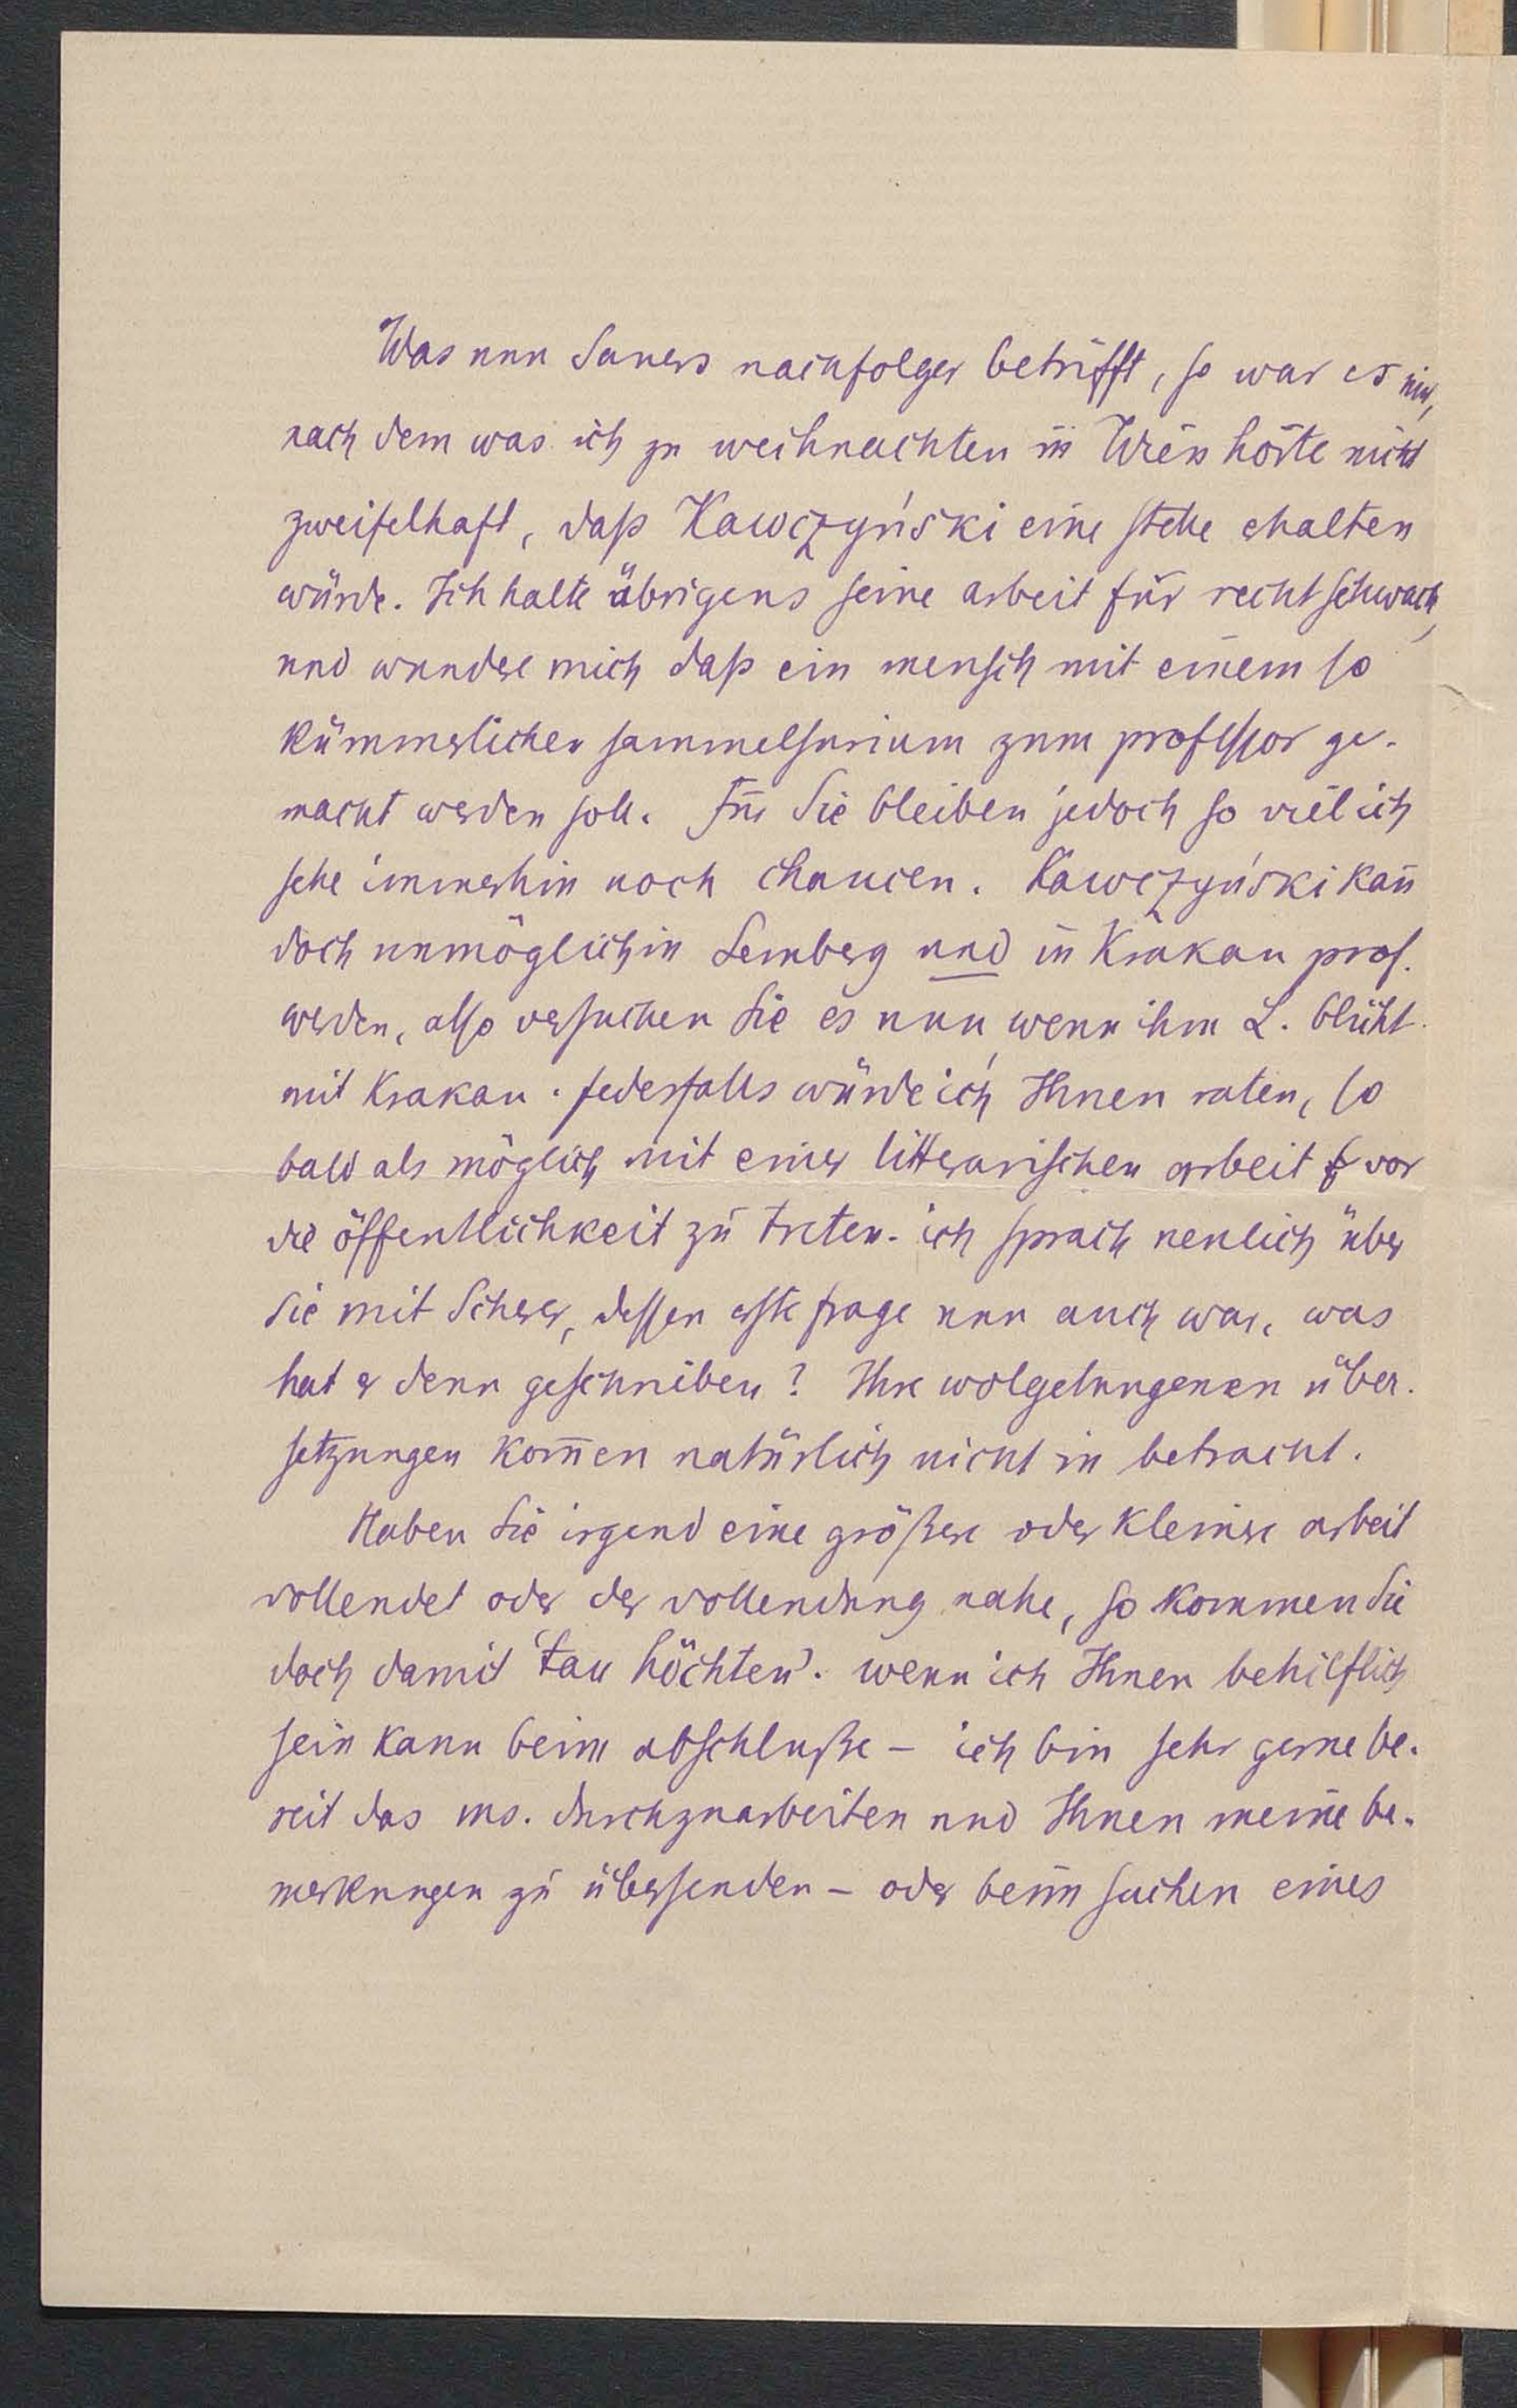 Was nun Sauers nachfolger betrifft, so war es mir,
nach dem was ich zu weihnachten in Wien hörte nicht
zweifelhaft, daß Kawczyński eine stelle erhalten
würde. Ich halte übrigens seine arbeit für recht schwach,
und wundre mich daß ein mensch mit einem so
kümmerlichen sammelsurium zum professor ge-
macht werden soll. Für Sie bleiben jedoch so viel ich
sehe immerhin noch chancen. Kawczyński kan̄
doch unmöglich in Lemberg und in Krakau prof.
werden, also versuchen Sie es nun wenn ihm L. blüht
mit Krakau. Jedesfalls würde ich Ihnen raten, so
bald als möglich mit einer litterarischen arbeit vor
die öffentlichkeit zu treten. ich sprach neulich über
Sie mit Scherer, dessen erste frage nun auch war, was
hat er denn geschrieben? Ihre wolgelungenen über-
setzungen kom̄en natürlich nicht in betracht.
Haben Sie irgend eine größere oder kleinere arbeit
vollendet oder der vollendung nahe, so kommen Sie
doch damit 'tau höchten'. wenn ich Ihnen behilflich
sein kann beim abschluße – ich bin sehr gerne be-
reit das ms. durchzuarbeiten und Ihnen meine be-
merkungen zu übersenden – oder beim suchen eines